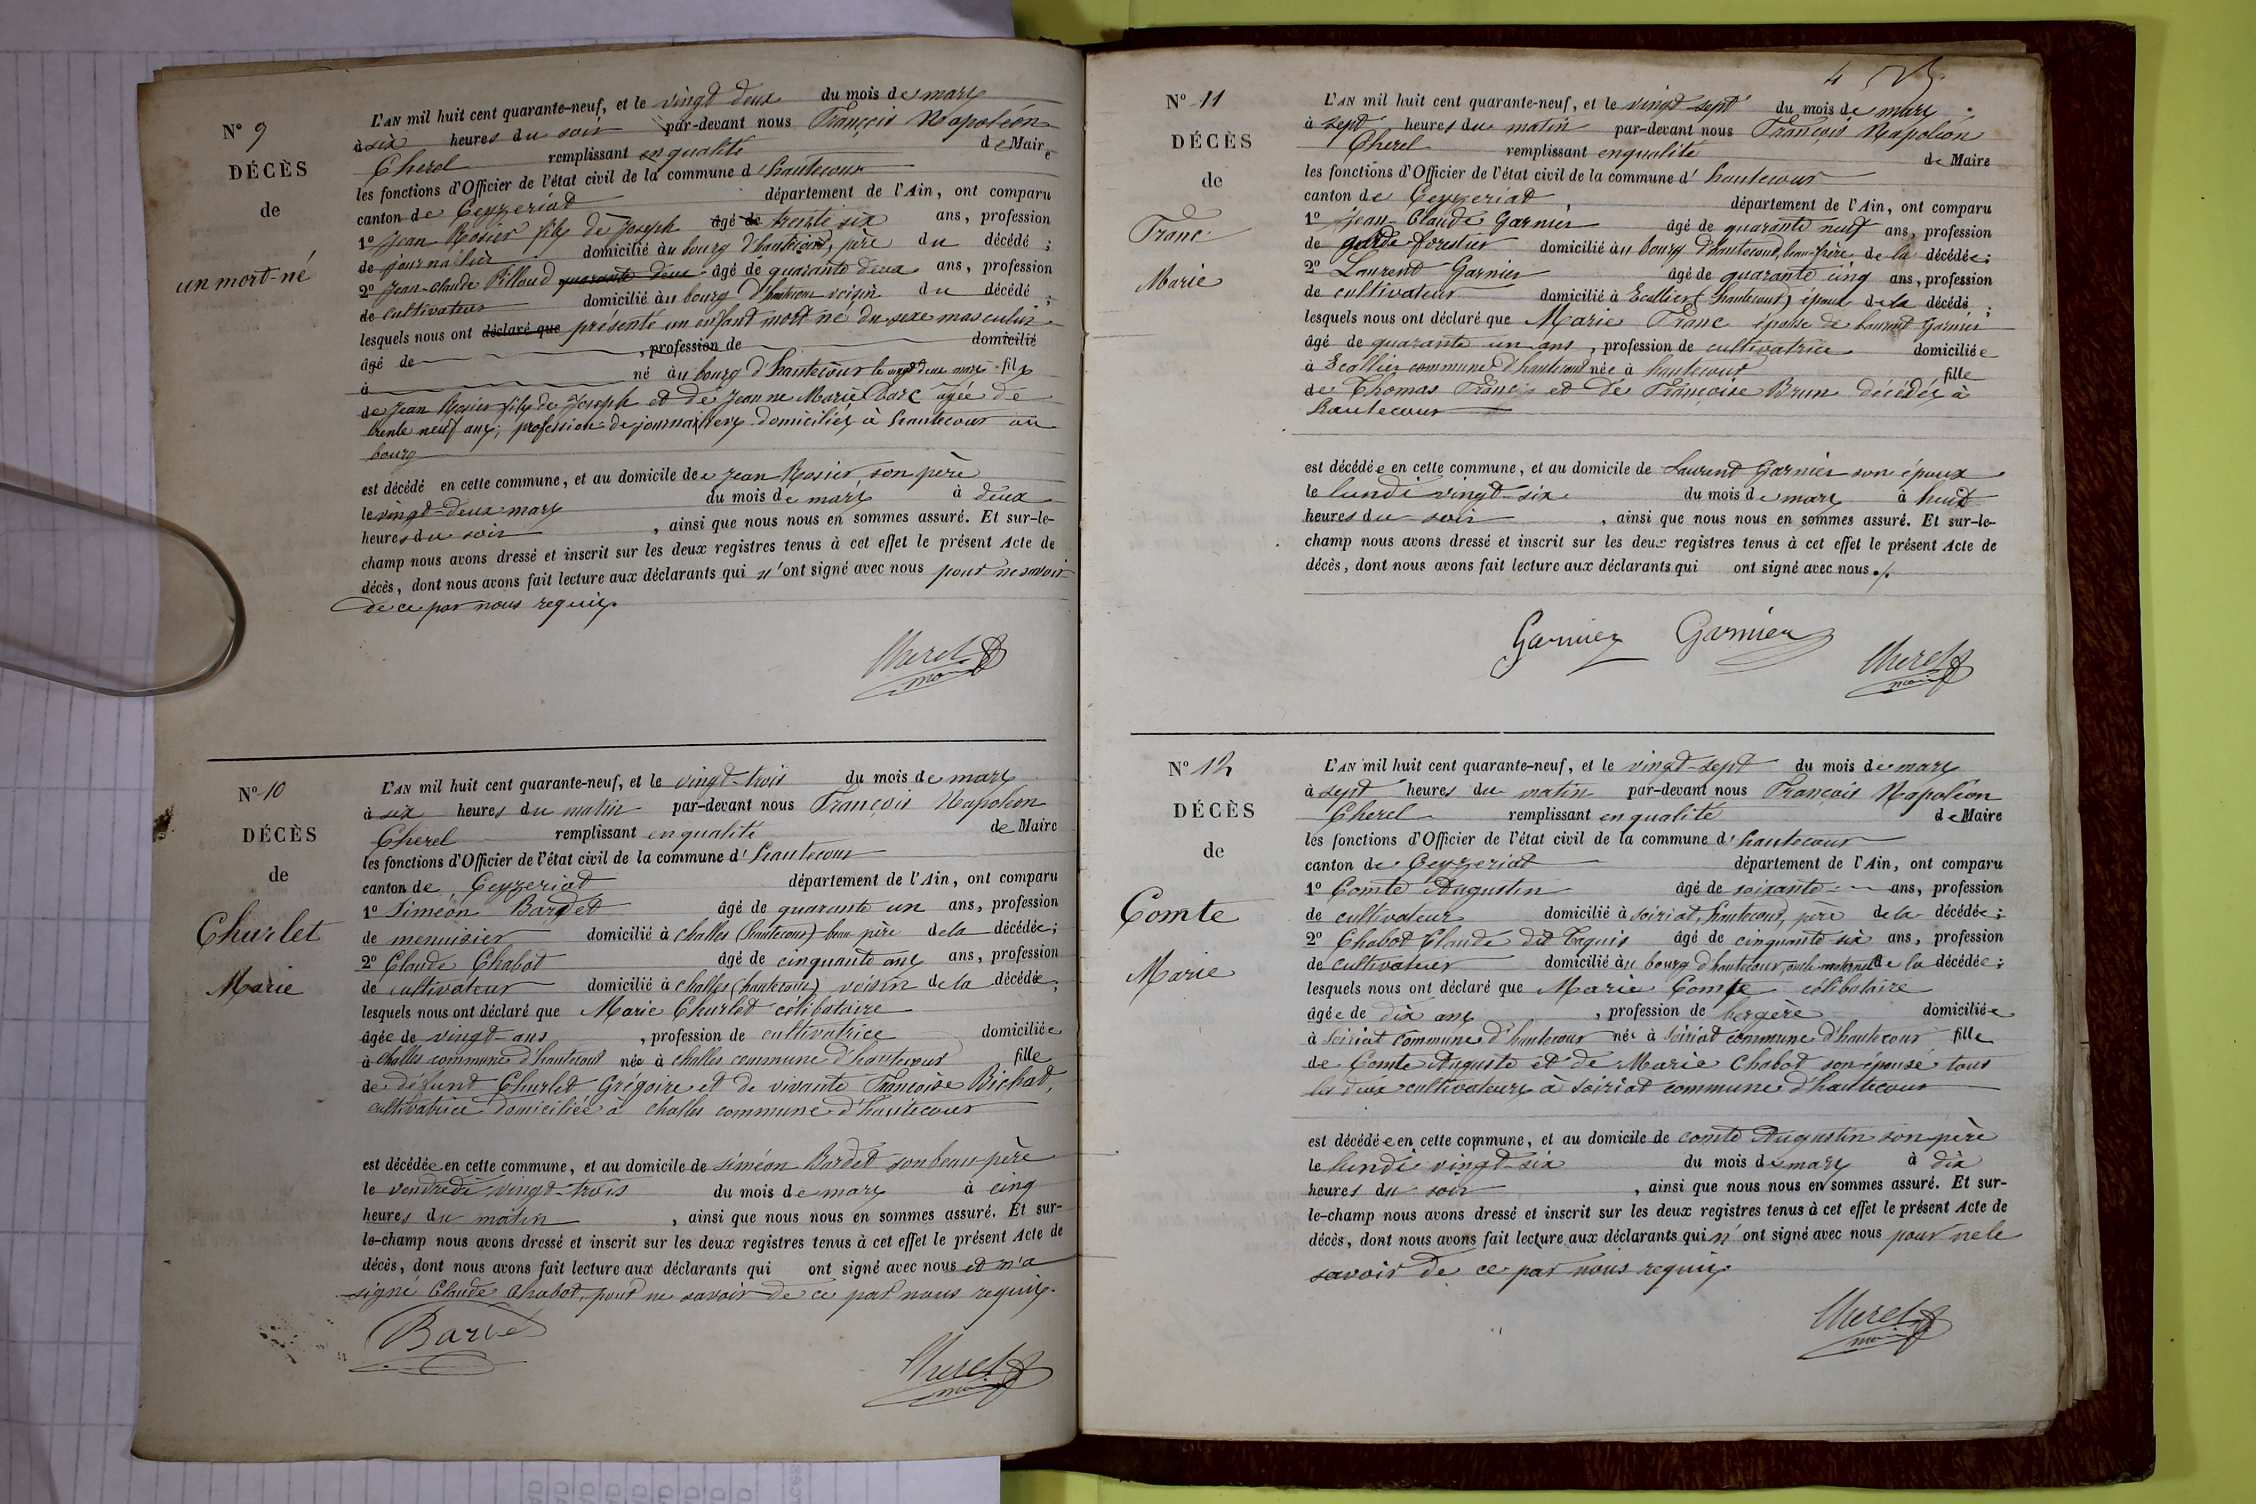 N° 9
DÉCÈS
de
un mort-né
L'AN mil huit cent quarante-neuf, et le vingt deux du mois de mars
à six heures du soir par-devant nous François Napoléon
Cherel remplissant en qualité de Maire
les fonctions d'Officier de l'état civil de la commune d'hautecour
canton de Ceyzeriat département de l'Ain, ont comparu
1° Jean Rosier fils de Joseph âgé de trente six ans, profession
de journalier domicilié au bourg d'hautecour, père du décédé;
2° Jean-Claude Pilloud quarante deux âgé de quarante deux ans, profession
de cultivateur domicilié au bourg d'hautecour voisin du décédé;
lesquels nous ont déclaré que présenté un enfant mort né du sexe masculin
âgé de , profession de domicilié
à né au bourg d'hautecour le vingt deux mars fils
de Jean Rosier fils de Joseph et de Jeanne Marie Barc âgée de
trente neuf ans; profession de journaliers domiciliés à hautecour au
bourg
est décédé en cette commune, et au domicile de Jean Rosier, son père
le vingt-deux mars du mois de mars à deux
heures du soir , ainsi que nous nous en sommes assuré. Et sur-le-
champ nous avons dressé et inscrit sur les deux registres tenus à cet effet le présent Acte de
décès, dont nous avons fait lecture aux déclarants qui n'ont signé avec nous pour ne savoir
de ce par nous requis.
Cherel
maire
N° 10
DÉCÈS
de
Churlet
Marie
L'AN mil huit cent quarante-neuf, et le vingt-trois du mois de mars
à six heures du matin par-devant nous François Napoléon
Cherel remplissant en qualité de Maire
les fonctions d'Officier de l'état civil de la commune d'hautecour
canton de Ceyzeriat département de l'Ain, ont comparu
1° Siméon Bardet âgé de quarante un ans, profession
de menuisier domicilié à challes (hautecour) beau père de la décédée;
2° Claude Chabot âgé de cinquante ans ans, profession
de cultivateur domicilié à challes (hautecour) voisin de la décédée;
lesquels nous ont déclaré que Marie Churlet célibataire
âgée de vingt-ans , profession de cultivatrice domiciliée
à challes commune d'hautecour née à challes commune d'hautecour fille
de défunt Churlet Grégoire et de vivante Françoise Bichat,
cultivatrice domiciliée à challes commune d'hautecour
est décédée en cette commune, et au domicile de siméon Bardet son beau-père
le vendredi vingt-trois du mois de mars à cinq
heures du matin , ainsi que nous nous en sommes assuré. Et sur-
le-champ nous avons dressé et inscrit sur les deux registres tenus à cet effet le présent Acte de
décès, dont nous avons fait lecture aux déclarants qui ont signé avec nous et n'a
signé Claude Chabot, pour ne savoir de ce par nous requis.
Cherel
maire
N° 11
DÉCÈS
de
Franc
Marie
L'AN mil huit cent quarante-neuf, et le vingt-sept du mois de mars
à sept heures du matin par-devant nous François Napoléon
Cherel remplissant en qualité de Maire
les fonctions d'Officier de l'état civil de la commune d'hautecour
canton de Ceyzeriat département de l'Ain, ont comparu
1° Jean-Claude Garnier âgé de quarante neuf ans, profession
de garde-forestier domicilié au bourg d'hautecour, beau-frère de la décédée;
2° Laurent Garnier âgé de quarante cinq ans, profession
de cultivateur domicilié à Ecallier (hautecour) époux de la décédé;
lesquels nous ont déclaré que Marie Franc épouse de Laurent Garnier
âgé de quarante un ans , profession de cultivatrice domiciliée
à Ecallier commune d'hautecour née à hautecour fille
de Thomas Franc et de Françoise Brun décédés à
hautecour
est décédée en cette commune, et au domicile de Laurent Garnier son époux
le lundi vingt-six du mois de mars à huit
heures du soir , ainsi que nous nous en sommes assuré. Et sur-le-
champ nous avons dressé et inscrit sur les deux registres tenus à cet effet le présent Acte de
décès, dont nous avons fait lecture aux déclarants qui ont signé avec nous./.
Garnier Garnier Cherel
maire
N° 12
DÉCÈS
de
Comte
Marie
L'AN mil huit cent quarante-neuf, et le vingt-sept du mois de mars
à sept heures du matin par-devant nous François Napoléon
Cherel remplissant en qualité de Maire
les fonctions d'Officier de l'état civil de la commune d'hautecour
canton de Ceyzeriat département de l'Ain, ont comparu
1° Comte Augustin âgé de soixante ans, profession
de cultivateur domicilié à soiriat, hautecour, père de la décédée;
2° Chabot Claude dit Taquis âgé de cinquante six ans, profession
de cultivateur domicilié au bourg d'hautecour, oncle maternel de la décédée;
lesquels nous ont déclaré que Marie Comte célibataire
âgée de dix ans , profession de bergère domiciliée
à Soiriat commune d'hautecour née à Soiriat commune d'hautecour fille
de Comte Auguste et de Marie Chabot son épouse tous
les deux cultivateurs à Soiriat commune d'hautecour
est décédée en cette commune, et au domicile de comte Augustin son père
le lundi vingt-six du mois de mars à dix
heures du soir , ainsi que nous nous en sommes assuré. Et sur-
le-champ nous avons dressé et inscrit sur les deux registres tenus à cet effet le présent Acte de
décès, dont nous avons fait lecture aux déclarants qui n'ont signé avec nous pour ne le
savoir de ce par nous requis.
Cherel
maire